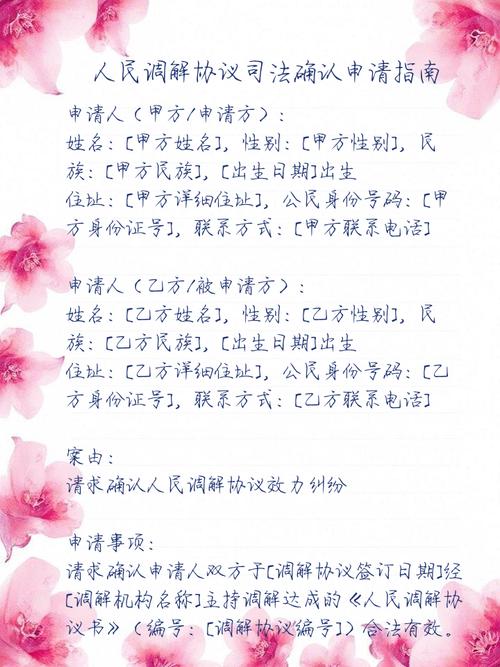 人民调解协议司法确认申请指南
申请人（甲方/申请方）：
姓名：[甲方姓名]，性别：[甲方性别]，民
族：[甲方民族]，[出生日期]出生
住址：[甲方详细住址]，公民身份号码：[甲
方身份证号]，联系方式：[甲方联系电话]
申请人（乙方/被申请方）：
姓名：[乙方姓名]，性别：[乙方性别]，民
族：[乙方民族]，[出生日期]出生
住址：[乙方详细住址]，公民身份号码：[乙
方身份证号]，联系方式：[乙方联系电话]
案由：
请求确认人民调解协议效力纠纷
申请事项：
请求确认申请人双方于[调解协议签订日期]经
[调解机构名称]主持调解达成的《人民调解协
议书》（编号：[调解协议编号]）合法有效。